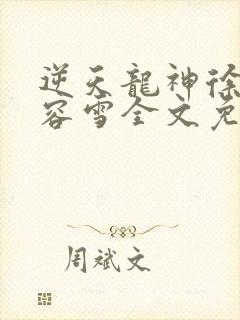 逆天龍神徐
容雪全文免
周斌文